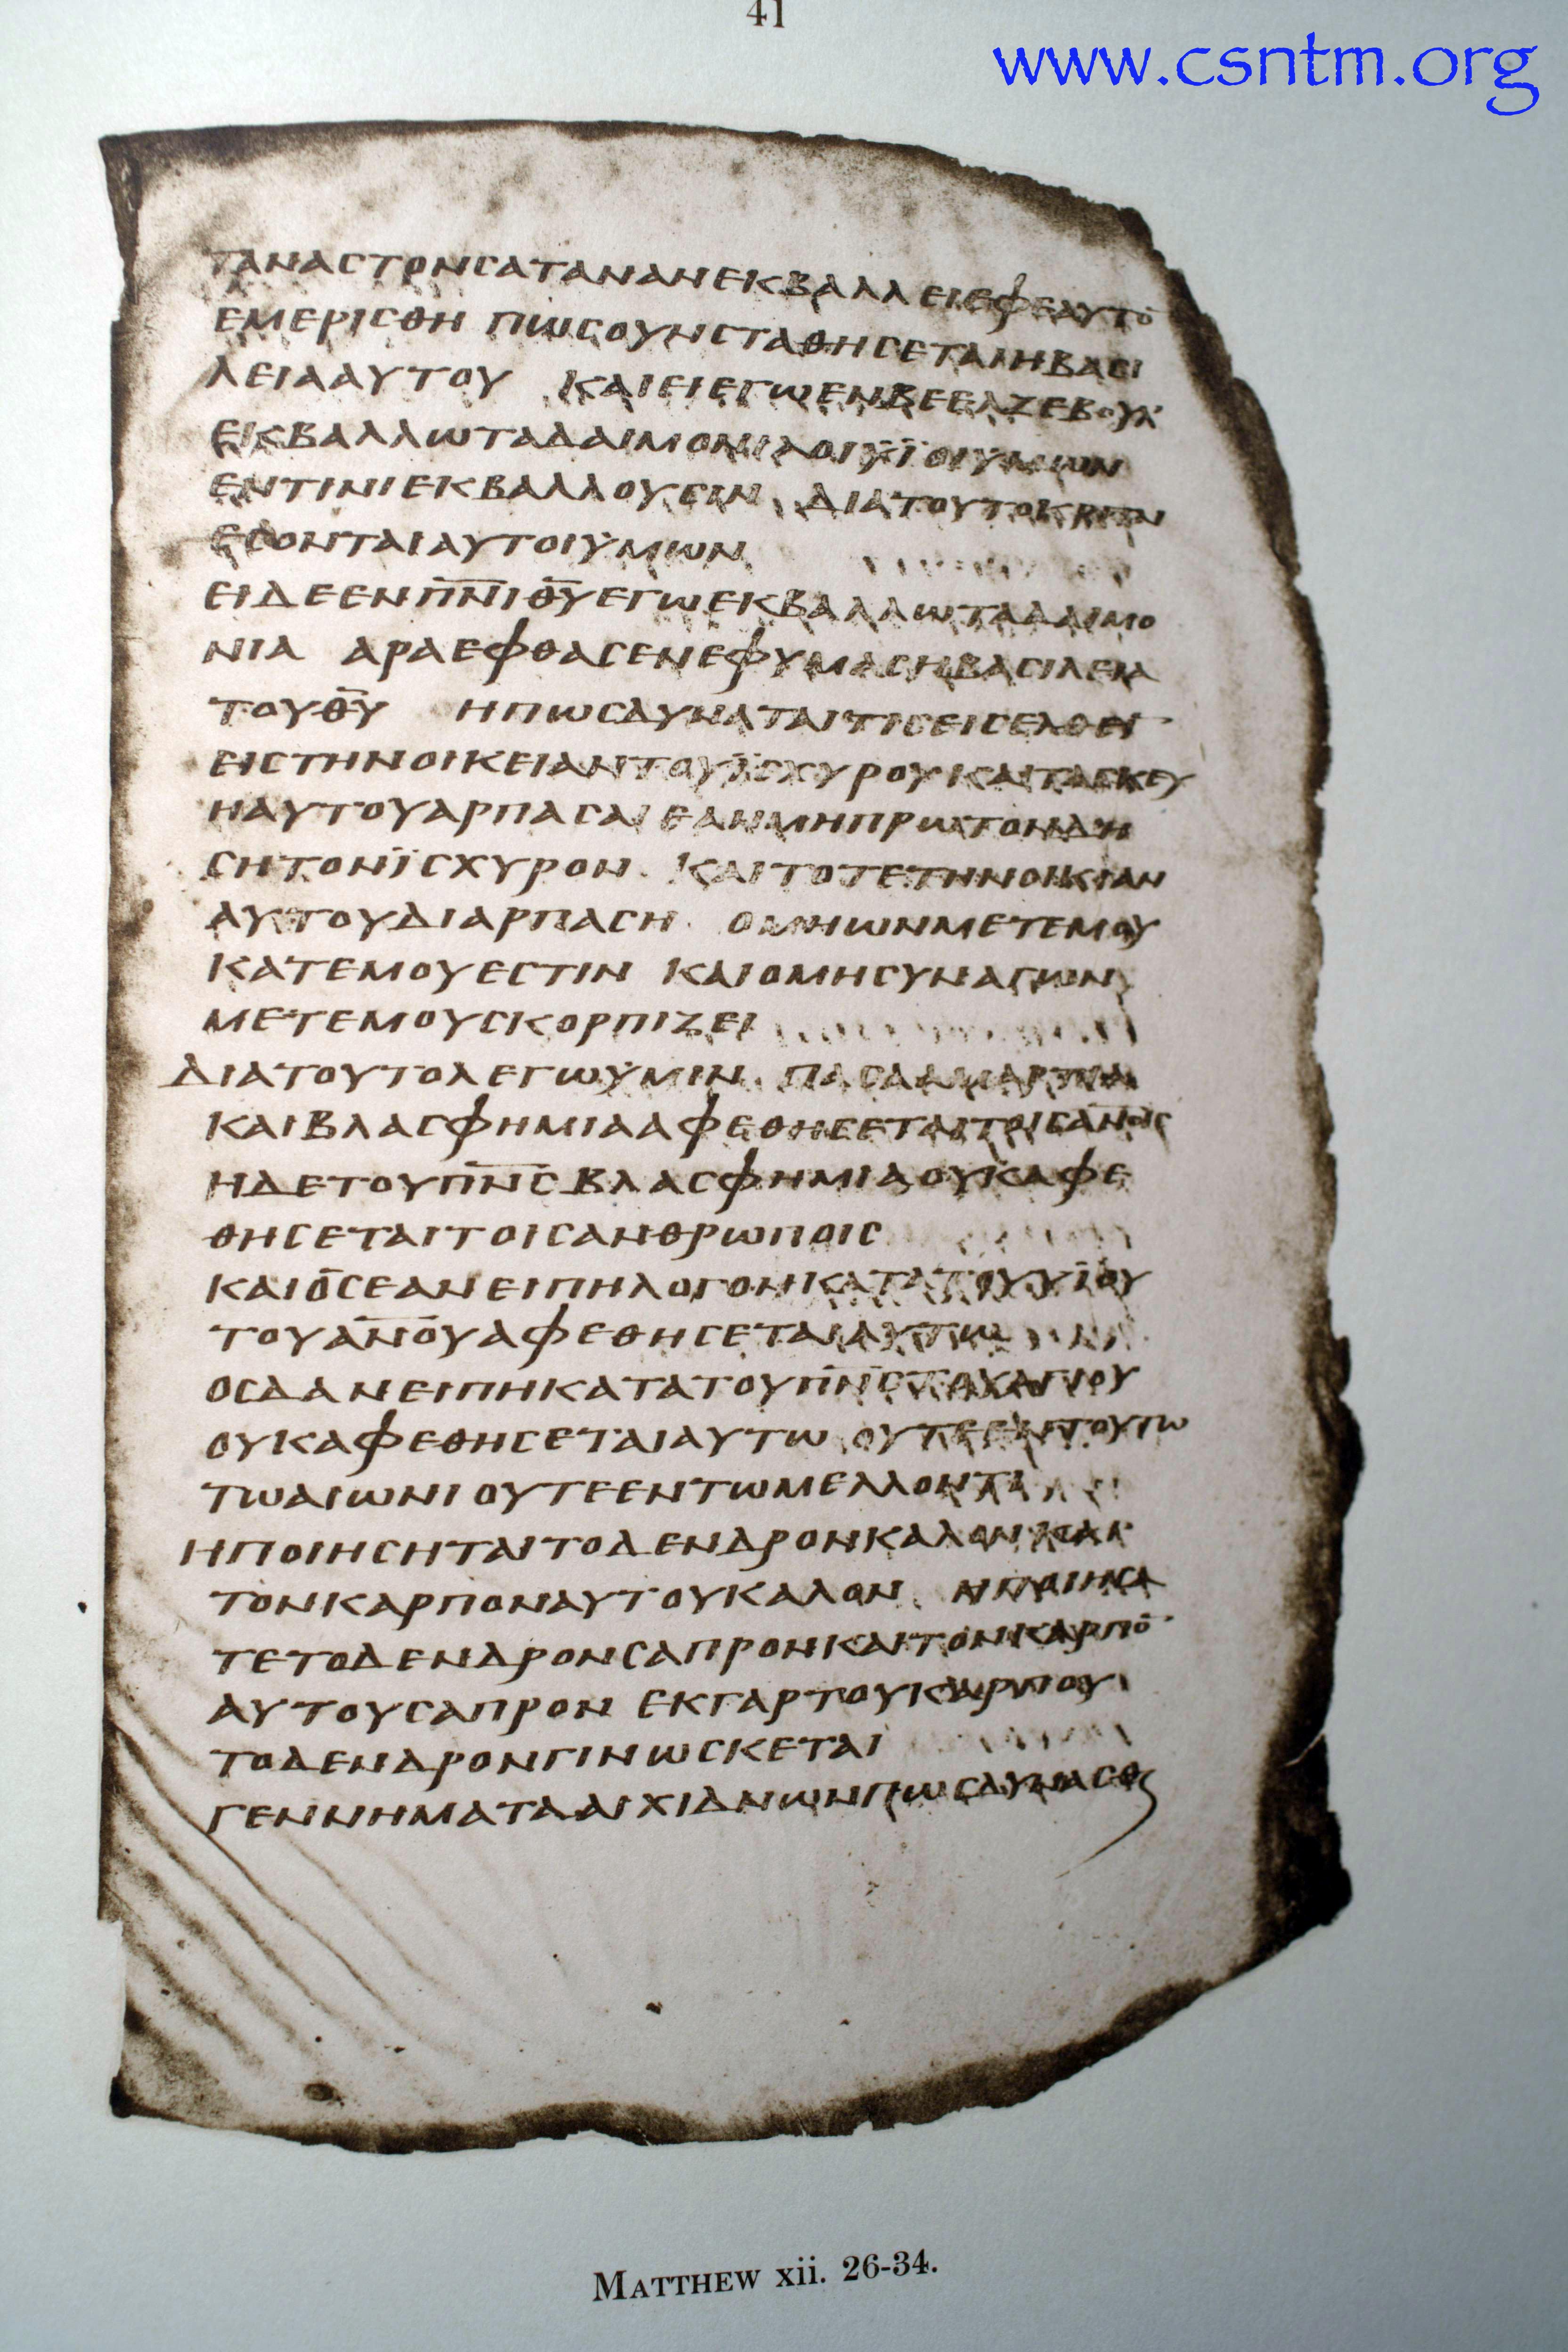 41
www.csntm.org
ΤΑΝΑСΤΟΝСΑΤΑΝΑΝΕΚΒΑΛΛΕΙΕΦΕΑΥΤΟ̅
ΕΜΕΡΙСΘΗ ΠΩСΟΥΝСΤΑΘΗСΕΤΑΙΗΒΑСΙ
ΛΕΙΑΑΥΤΟΥ ΚΑΙΕΙΕΓΩΕΝΒΕΕΛΖΕΒΟΥΛ
ΕΚΒΑΛΛΩΤΑΔΑΙΜΟΝΙΑΟΙΫΪΟΙΫΜΩΝ
ΕΝΤΙΝΙΕΚΒΑΛΛΟΥСΙΝ ΔΙΑΤΟΥΤΟΚΡΙΤΑΙ
ΕСΟΝΤΑΙΑΥΤΟΙΫΜΩΝ
ΕΙΔΕΕΝΠ̅Ν̅Ι̅Θ̅Υ̅ΕΓΩΕΚΒΑΛΛΩΤΑΔΑΙΜΟ
ΝΙΑ ΑΡΑΕΦΘΑСΕΝΕΦΥΜΑСΗΒΑСΙΛΕΙΑ
ΤΟΥΘ̅Υ̅ ΗΠΩСΔΥΝΑΤΑΙΤΙСΕΙСΕΛΘΕΙ̅
ΕΙСΤΗΝΟΙΚΕΙΑΝΤΟΥΪСΧΥΡΟΥΚΑΙΤΑСΚΕΥ
ΗΑΥΤΟΥΑΡΠΑСΑΙ ΕΑΝΜΗΠΡΩΤΟΝΔΗ
СΗΤΟΝΪСΧΥΡΟΝ ΚΑΙΤΟΤΕΤΗΝΟΙΚΙΑΝ
ΑΥΤΟΥΔΙΑΡΠΑСΗ ΟΜΗΩΝΜΕΤΕΜΟΥ
ΚΑΤΕΜΟΥΕСΤΙΝ ΚΑΙΟΜΗСΥΝΑΓΩΝ
ΜΕΤΕΜΟΥСΚΟΡΠΙΖΕΙ
ΔΙΑΤΟΥΤΟΛΕΓΩΫΜΙΝ ΠΑСΑΑΜΑΡΤΙΑ
ΚΑΙΒΛΑСΦΗΜΙΑΑΦΕΘΗСΕΤΑΙΤΟΙСΑ̅Ν̅Ο̅Ι̅С̅
ΗΔΕΤΟΥΠ̅Ν̅С̅ΒΛΑСΦΗΜΙΑΟΥΚΑΦΕ
ΘΗСΕΤΑΙΤΟΙСΑΝΘΡΩΠΟΙС
ΚΑΙΟСΕΑΝΕΙΠΗΛΟΓΟΝΚΑΤΑΤΟΥΥΪΟΥ
ΤΟΥΑ̅Ν̅Ο̅Υ̅ΑΦΕΘΗСΕΤΑΙΑΥΤΩ
ΟСΔΑΝΕΙΠΗΚΑΤΑΤΑΤΟΥΠ̅Ν̅С̅ΤΟΥΑΓΙΟΥ
ΟΥΚΑΦΕΘΗСΕΤΑΙΑΥΤΩ ΟΥΤΕΕΝΤΟΥΤΩ
ΤΩΑΙΩΝΙΟΥΤΕΕΝΤΩΜΕΛΛΟΝΤΙ
ΗΠΟΙΗСΗΤΑΙΤΟΔΕΝΔΡΟΝΚΑΛΟΝΚΑΙ
ΤΟΝΚΑΡΠΟΝΑΥΤΟΥΚΑΛΟΝ ΗΠΟΙΗСΑ
ΤΕΤΟΔΕΝΔΡΟΝСΑΠΡΟΝΚΑΙΤΟΝΚΑΡΠΟ̅
ΑΥΤΟΥСΑΠΡΟΝ ΕΚΓΑΡΤΟΥΚΑΡΠΟΥ
ΤΟΔΕΝΔΡΟΝΓΙΝΩСΚΕΤΑΙ
ΓΕΝΝΗΜΑΤΑΑΙΧΙΔΝΩΝΠΩСΔΥΝΑСΘϗ
MATTHEW xii. 26-34.